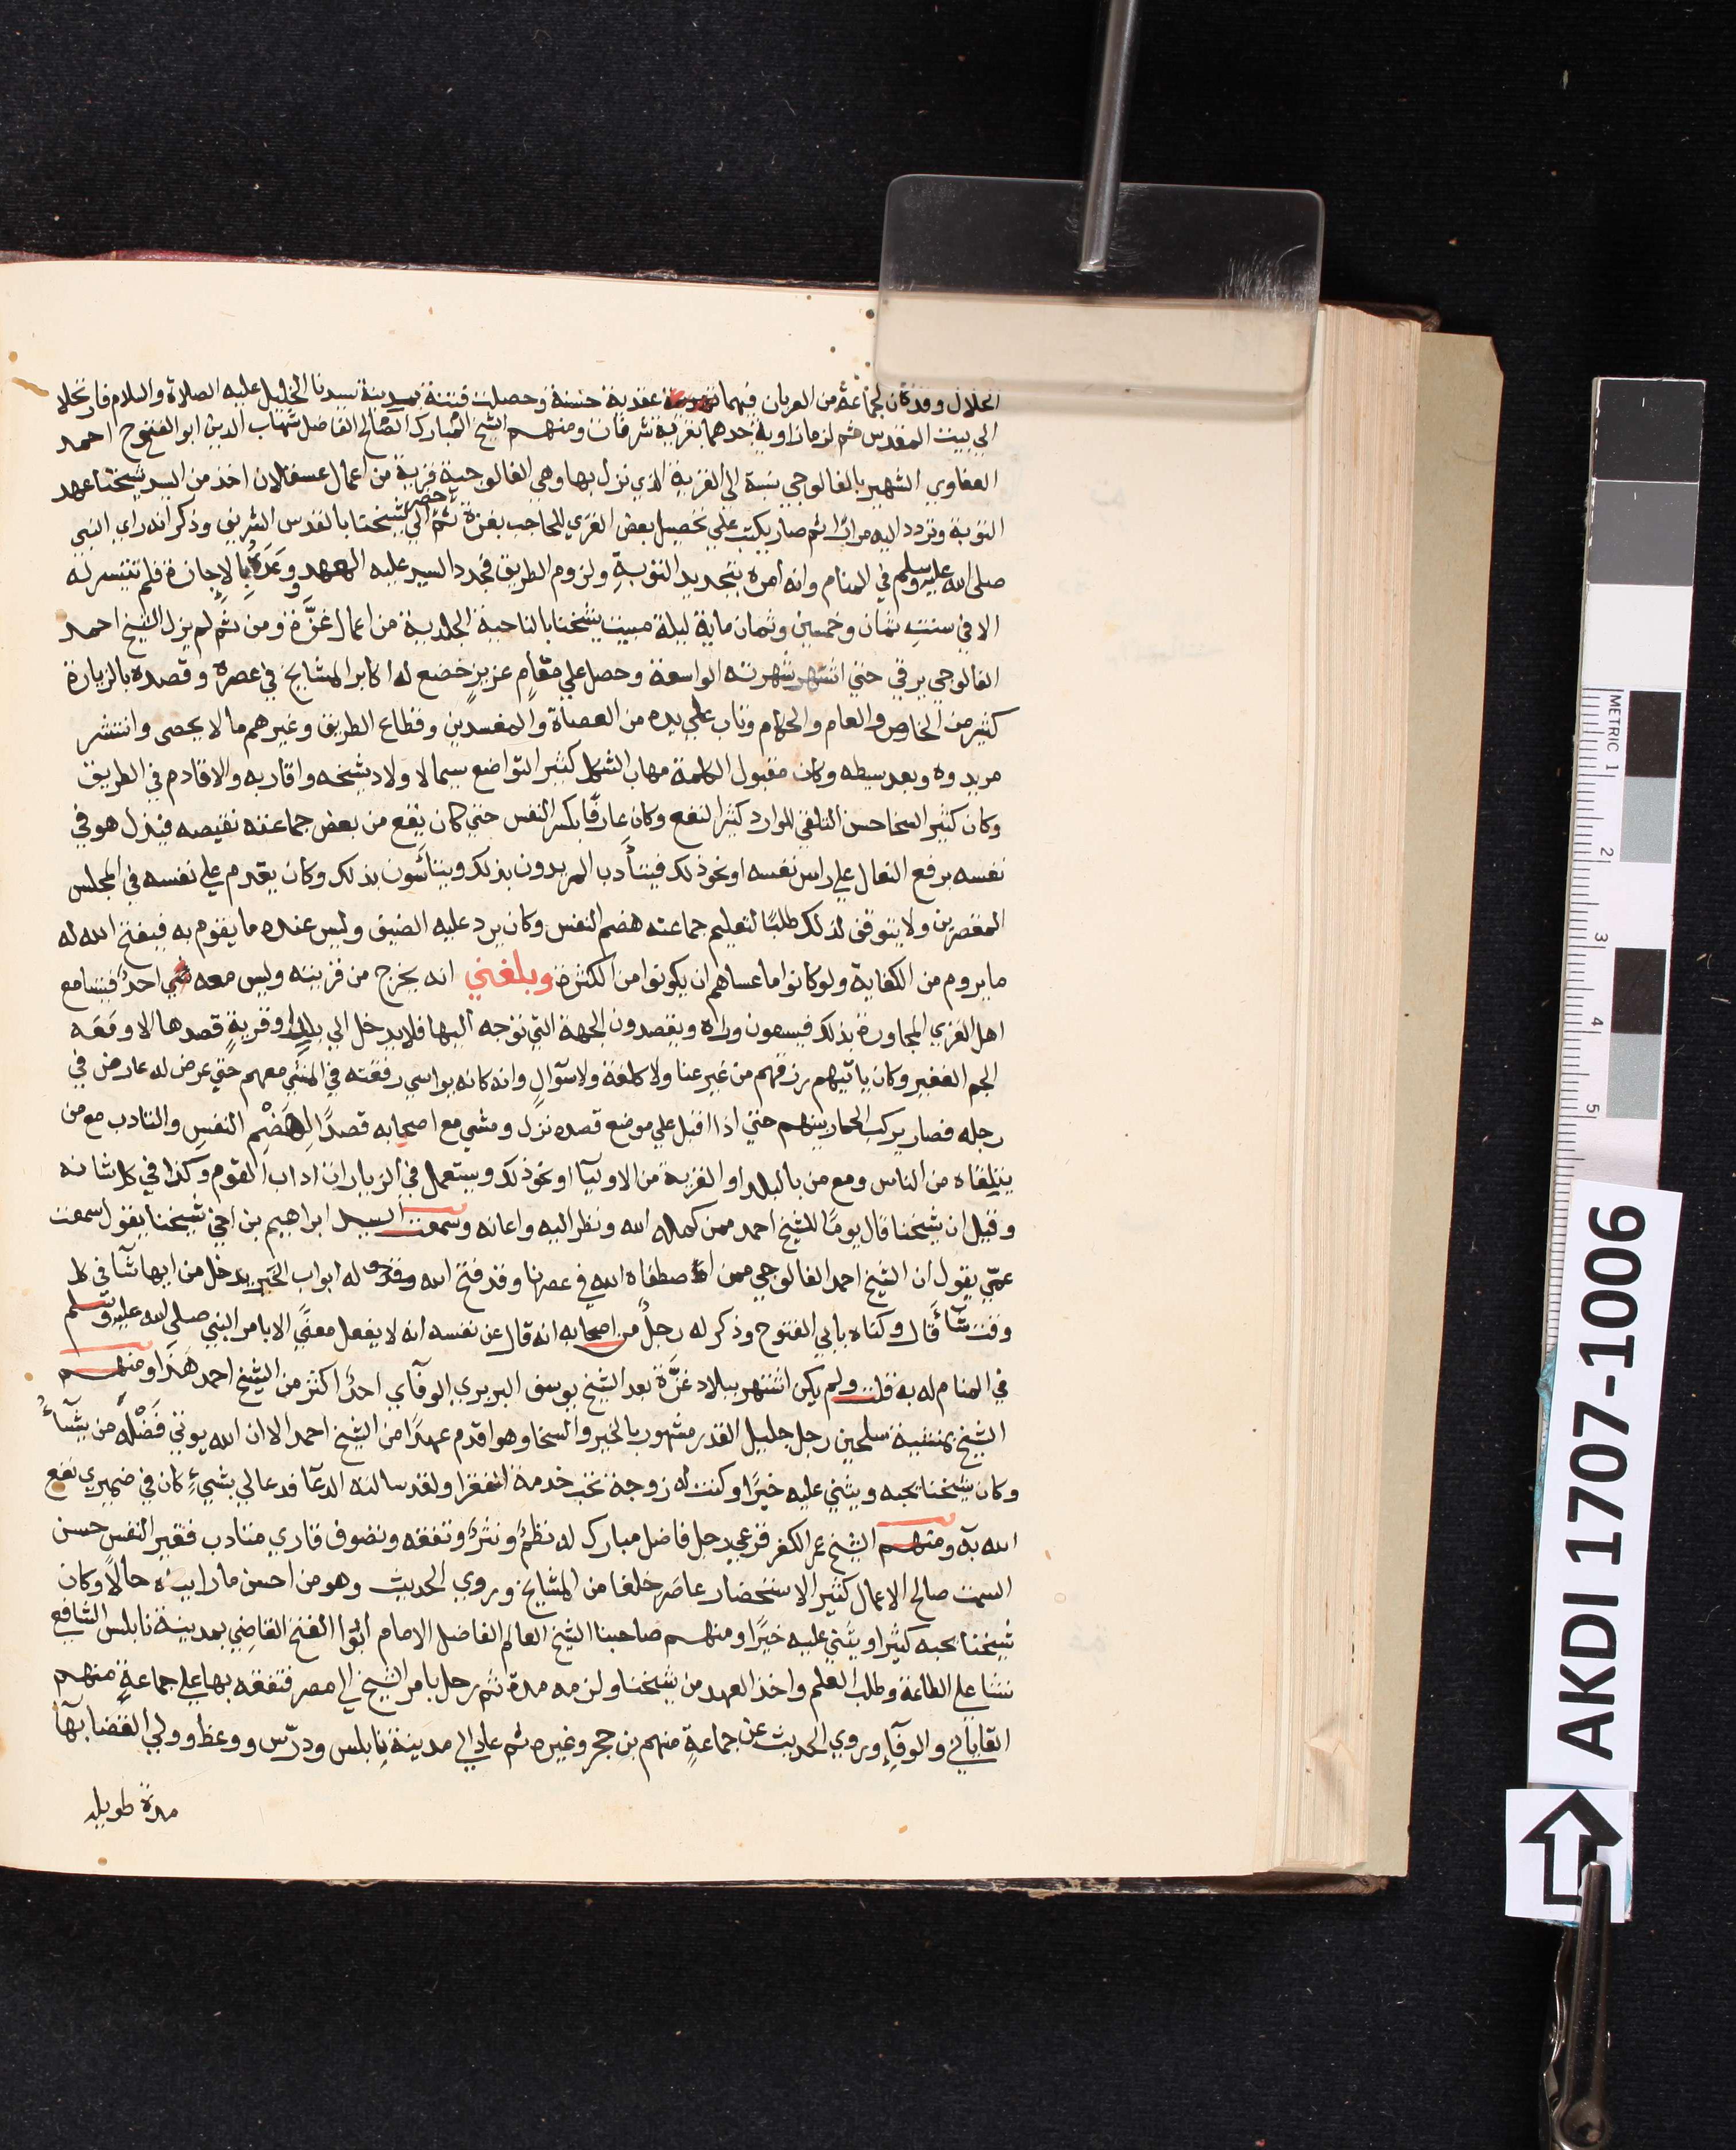 الخلال وقد كان لجماعة من العربان فيهما عقدية حسنة وحصلت فتنة بمدينة سيدنا الخليل عليه الصلاة والسلام فارتحلا
الي بيت المقدس ثم لزما زاوية جدهما بقرية شرفات ومنهم الشيخ المبارك الصالح الفاضل شهاب الدين ابو الفتوح احمد
العفاوي الشهير بالفالوجي نسبة الى القرية الذي نزل بها وهي الفالوجية قرية من اعمال عسقلان اخذ من السيد شيخنا عهد
التوبة وتردد اليه مرارًا ثم صار يكتب علي تحصيل بعض القري للحاجب بغزة ثم حضر الي شيخنا بالقدس الشريف وذكر انه راي النبي
صلى الله عليه وسلم في المنام وانه امره بتجديد التوبةِ ولزوم الطريق فجدد السيد عليه العهد ووَعَدَهُ بالاجازة فلم تتيسر له
الا في سنتِ ثمان وخمسين وثمان ماية ليلة مبيت شيخنا بالناحية الجلدية من اعمال غزَّة ومن ثَمَّ لم يزل الشيخ احمد
الفالوجي يرقي حتي اشتهر شهرته الواسعة وحصل علي مقامٍ عزيزٍ خضع له اكابر المشايخ في عصره وقصده بالزيارة
كثير من الخاص والعام والحكام وتاب علي يده من العصاة والمفسدين وقطاع الطريق وغيرهم ما لا يحصى وانتشر
مريدوه وبعد سيطه وكان مقبول الكلمة مهاب الشكل كثير التواضع سيما لاولاد شيخه واقاربه والاقادم في الطريق
وكان كثير السخا حسن التلقي للوارد كثير النفع وكان عارفًا بكسر النفس حتي كان يقع من بعض جماعته نقيصه فينزل هو في
نفسه برفع النعال علي راس نفسه او نحو ذلك فيتأدب المريدون بذلك ويتأسّون بذلك وكان يقدم علي نفسه في المجلس
المقصرين ولا يتوقف لذلك طلبًا لتعليم جماعته هضم النفس وكان يرد عليه الضيق وليس عنده ما يقوم به فيفتح الله له
ما يروم من الكفاية ولو كانوا ما عساهم ان يكونوا من الكثرة وبلغني انه يخرج من قريته وليس معه احدٌ فيتسامع
اهل القري المجاورة بذلك فيسعون وراه ويقصدون الجهة التي توجه اليها فلا يدخل الي بلدٍ او قريةٍ قصدها الا ومَعَه
الجم الغفير وكان ياتيهم رزقهم من غير عنا ولا كلفة ولا سؤالٍ وانه كانه يواسي رفقته في المشي معهم حتي عرض له عارض في
رجله فصار يركب الحمار بينهم حتي اذا اقبل علي موضع قصده نزل ومشي مع اصحابه قصدًا لِهَضْمِ النفسِ والتادب مع من
يتلقاه من الناس ومع من بالبلد او القرية من الاوليآ او نحو ذلك ويستعمل في الزيارات اداب القوم وكذا في كل شانه
وقيل ان شيخنا قال يومًا للشيخ احمد ممن كمله الله ونظر اليه واعانه وسمعت السيد ابراهيم بن اخي شيخنا يقول سمعت
عمّي يقول ان الشيخ احمد الفالوجي ممن اصطفاه الله في عصرنا وقد فتح الله له ابواب الخير يدخل من ايها شآ في كل
وقت شآءَ قال وكناه بابي الفتوح وذكر له رجلٌ من اصحابه انه قال عن نفسه انه لا يفعل معنًي الا بامر النبي صلى الله عليه وسلم
في المنام له به قلت ولم يكن اشتهر ببلاد غزَّة بعد الشيخ يوسف البربري الوفآي احدٌ اكثر من الشيخ احمد هَذَا ومنهم
الشيخ سلمين رجل جليل القدر مشهور بالخير والسخا وهو اقدم عهدًا من الشيخ احمد الا ان الله يوتي فَضْلَه من يشآءُ
وكان شيخنا يحبه ويثني عليه خيرًا وكنت له زوجة تحب خدمة الفقرا ولقد سالته الدعآ فدعا لي بشيءٍ كان في ضميري نفع
الله به ومنهم الشيخ عمر الكفر قرعي رجل فاضل مبارك له نظمٌ ونثرٌ وتفقه وتصوف قاري متادب فقير النفس حسن
السمت صالح الاعمال كثير الاستحضار عاصَر خلقا من المشايخ وروي الحديث وهو من احسن ما رايت حالًا وكان
شيخنا يحبه كثيرا ويثني عليه خيرًا ومنهم صاحبنا الشيخ العالم الفاضل الامام ابوا الفتح القاضِي بمدينة نابلس الشافعي
نشا علي الطاعة وطلب العلم واخذ العهد من شيخنا ولزمه مدة ثم رحل بامر الشيخ الي مصر فتفقه بها علي جماعةٍ منهم
القاياتي والوفآءِ وروي الحديث عن جماعةٍ منهم بن حجر وغيره ثم عاد الي مدينة نابلس ودرّس ووعظ وولي القضا بها
مدة طويله
AKDI 1707-1006
METRIC 1
2
3
4
5